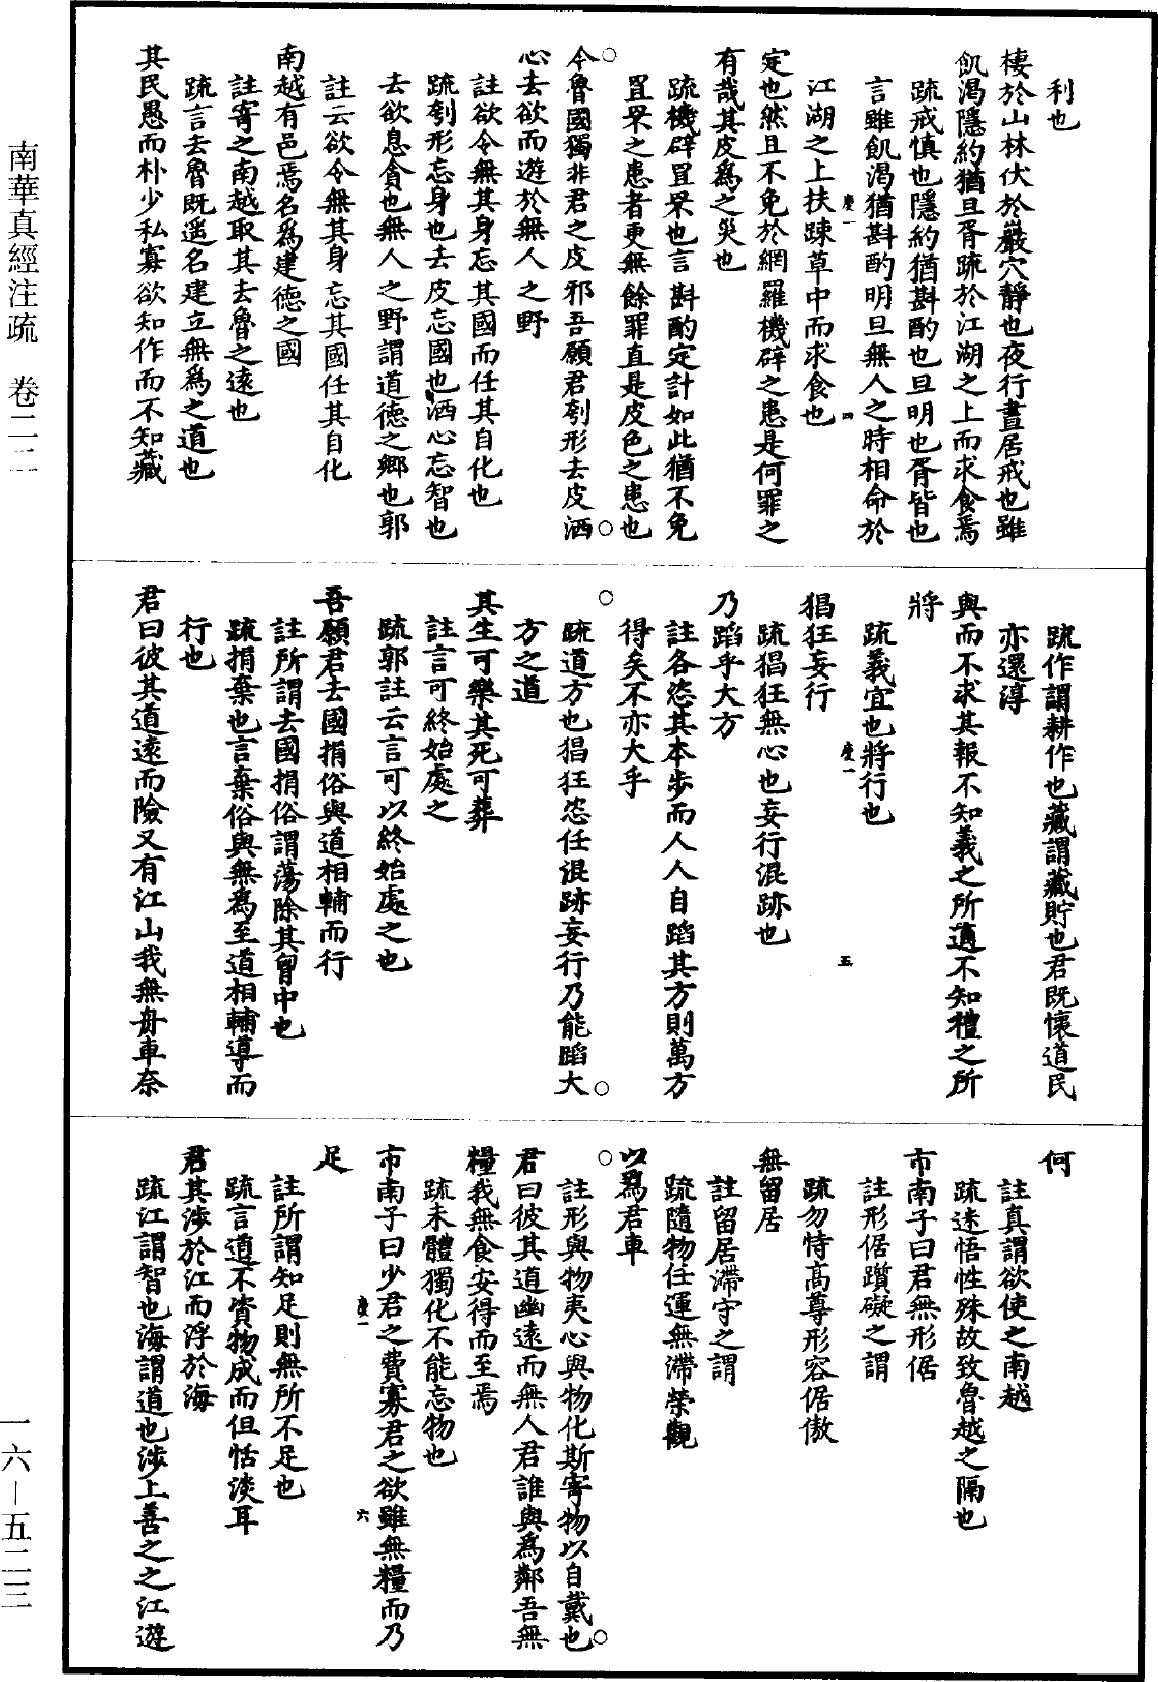 利也
棲於山林伏於巖穴靜也夜行晝居戒也雖
飢渴隱約猶旦胥疏於江湖之上而求食焉
疏戒慎也隱約猶斟酌也旦明也胥皆也
言雖飢渴猶斟酌明旦無人之時相命於
江湖之上扶踈草中而求食也
定也然且不免於網羅機辟之患是何罪之
有哉其皮為之災也
疏機辟罝罘也言斟酌定計如此猶不免
罝罘之患者更無餘罪直是皮色之患也
今魯國獨非君之皮邪吾願君刳形去皮洒
心去欲而遊於無人之野
註欲令無其身忘其國而任其自化也
疏刳形忘身也去皮忘國也洒心忘智也
去欲息貪也無人之野謂道德之鄉也郭
註云欲令無其身忘其國任其自化
南越有邑焉名為建德之國
註寄之南越取其去魯之遠也
疏言去魯既遥名建立無為之道也
其民愚而朴少私寡欲知作而不知藏
疏作謂耕作也藏謂藏貯也君既懷道民
亦還淳
與而不求其報不知義之所適不知禮之所
將
疏義宜也將行也
猖狂妄行
疏猖狂無心也妄行混跡也
乃蹈乎大方
註各恣其本步而人人自蹈其方則萬方
得矣不亦大乎
疏道方也猖狂恣任混跡妄行乃能蹈大
方之道
其生可樂其死可葬
註言可終始處之
疏郭註云言可以終始處之也
吾願君去國捐俗與道相輔而行
註所謂去國捐俗謂蕩除其胷中也
疏捐棄也言棄俗與無為至道相輔導而
行也
君曰彼其道遠而險又有江山我無舟車奈
何
註真謂欲使之南越
疏迷悟性殊故致魯越之隔也
市南子曰君無形倨
註形倨躓礙之謂
疏勿恃高尊形容倨傲
無留居
註留居滯守之謂
疏隨物任運無滯榮觀
以為君車
註形與物夷心與物化斯寄物以自載也
君曰彼其道幽遠而無人君誰與為鄰吾無
糧我無食安得而至焉
疏未體獨化不能忘物也
市南子曰少君之費寡君之欲雖無糧而乃
足
註所謂知足則無所不足也
疏言道不資物成而但恬淡耳
君其涉於江而浮於海
疏江謂智也海謂道也涉上善之之江遊
南華真經注疏　卷二二
一六—五二三